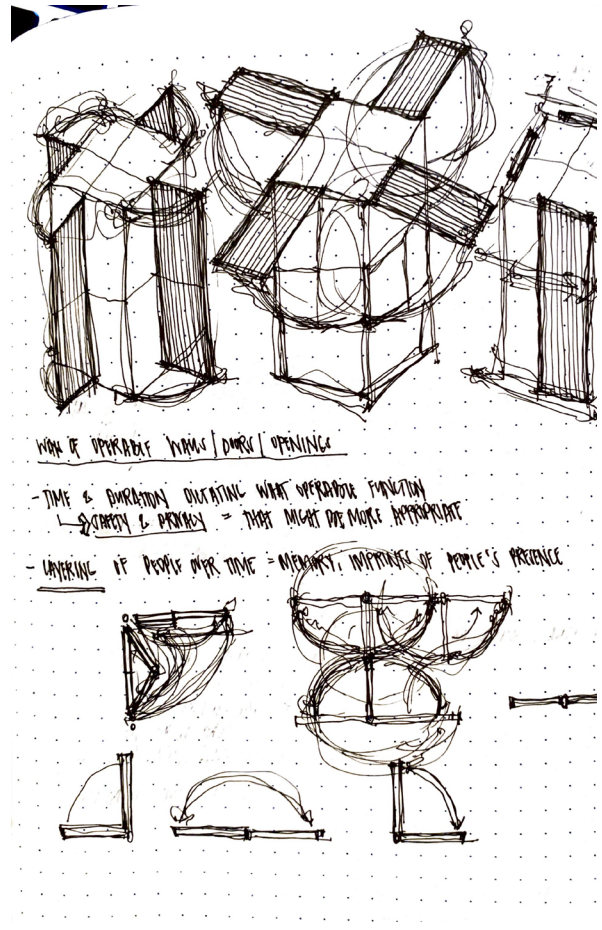 WAY OF OPERABLE WALLS | DOORS | OPENINGS
- TIME & DURATION DICTATING WHAT OPERABLE FUNCTION
SAFETY & PRIVACY = THAT MIGHT BE MORE APPROPRIATE
- LAYERING OF PEOPLE OVER TIME = MEMORY, IMPRINTS OF PEOPLE'S PRESENCE